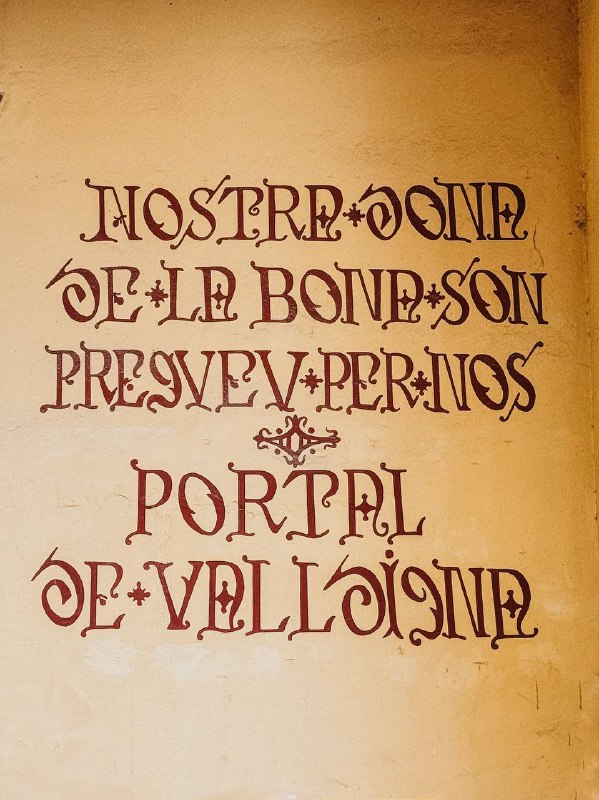 NOSTRA·DONA
DE·LA BONA·SON
PREGVEV·PER·NOS
PORTAL
DE·VALLDiGNA